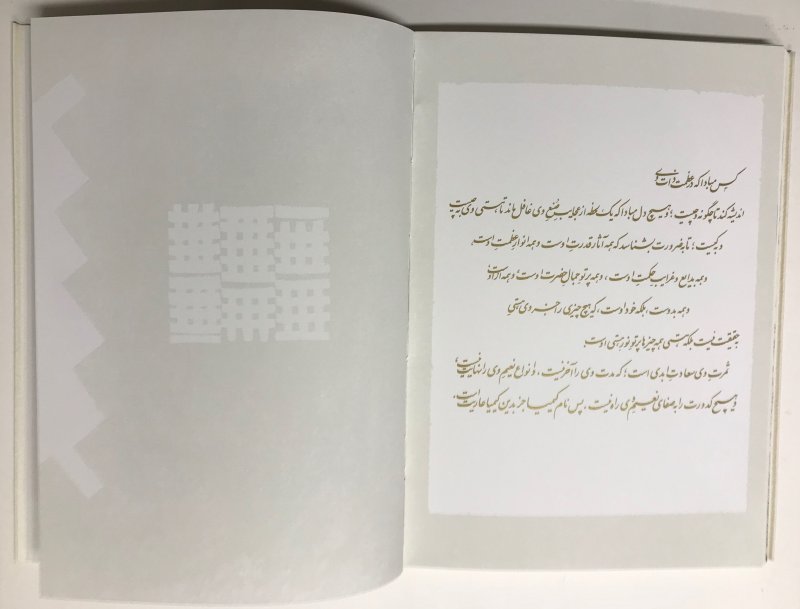 پس مبادا که در عظمت ذات وی
اندیشه کند تا چگونه و چیست؛ و هیچ دل مبادا که یک لحظه از عجایب صُنع وی غافل ماند تا هستی وی به چیست
و به کیست؛ تا به ضرورت بشناسد که همه آثار قدرت اوست و همه انوار عظمت اوست،
و همه بدایع و غرایب حکمت اوست، و همه پرتو جمال حضرت اوست؛ و همه از اوست
و همه بدوست، بلکه خود اوست، که هیچ چیزی را جز وی هستی
حقیقت نیست بلکه هستی همه چیزها پرتو نور هستی اوست.
ثمرت وی سعادت ابدی است؛ که مدت وی را آخر نیست، و انواع نعیم وی را نهایت نیست،
و هیچ کدورت را به صفای نعیم وی راه نیست، پس نام کیمیا جز بدین کیمیا عاریت است.